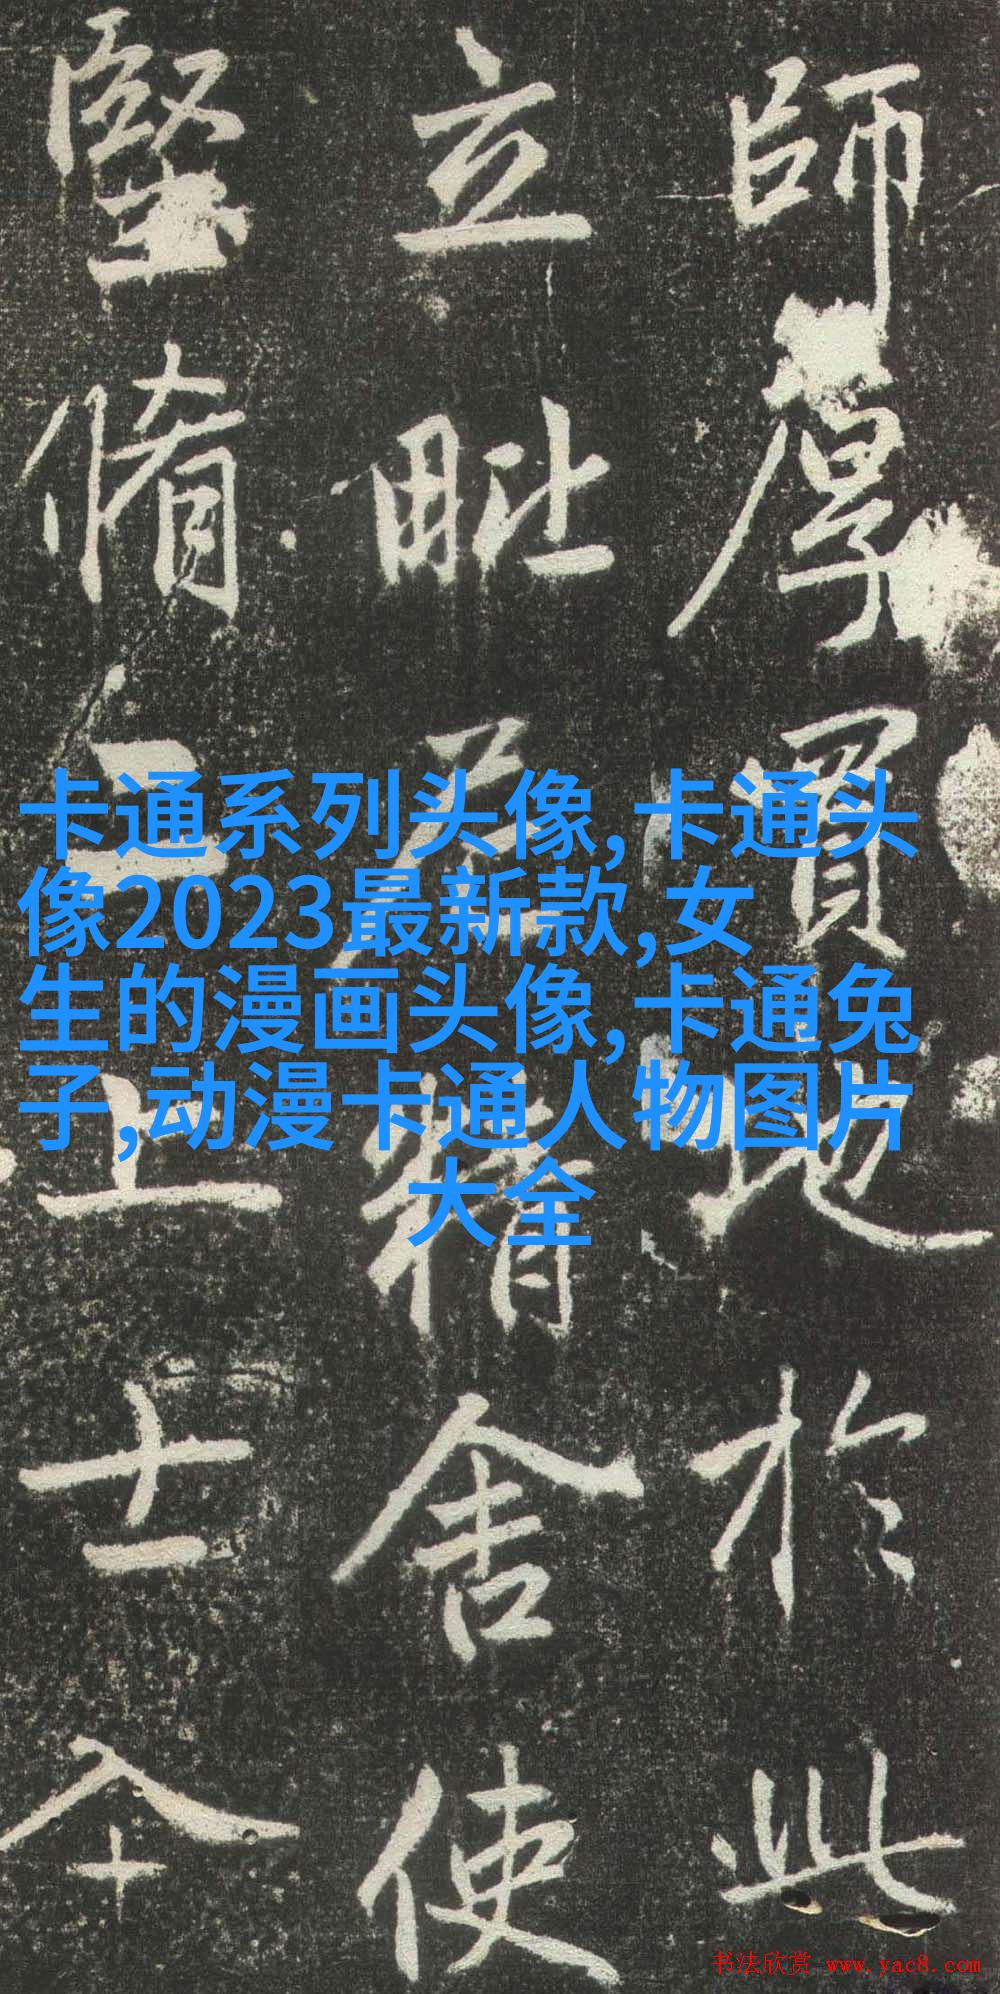 師厚買地於此
立毗尼精舍使
堅脩上士
卡通系列头像,卡通头
像2023最新款,女
生的漫画头像,卡通兔
子,动漫卡通人物图片
大全
书法欣赏 www.yac8.com